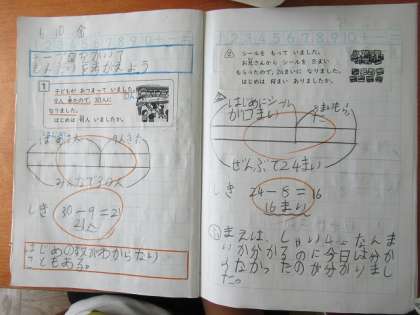 6/10 金
1
子どもが あつまって いました。
9人 来たので、30人に
なりました。
はじめは 何人 いましたか。
9人きた
みんなで30人
しき 30-9=21
21人
はじめの数がわからない
こともある。
2
シールを もって いました。
お兄さんから シールを 8まい
もらったので、24まいに なりました。
はじめは 何まい ありましたか。
はじめにシール
がつまい
8まいもらう
ぜんぶで24まい
しき 24-8=16
16まい
まえは、しょいしょなんま
いか分かるのに今日は分か
らなかったのが分かりまし
た。